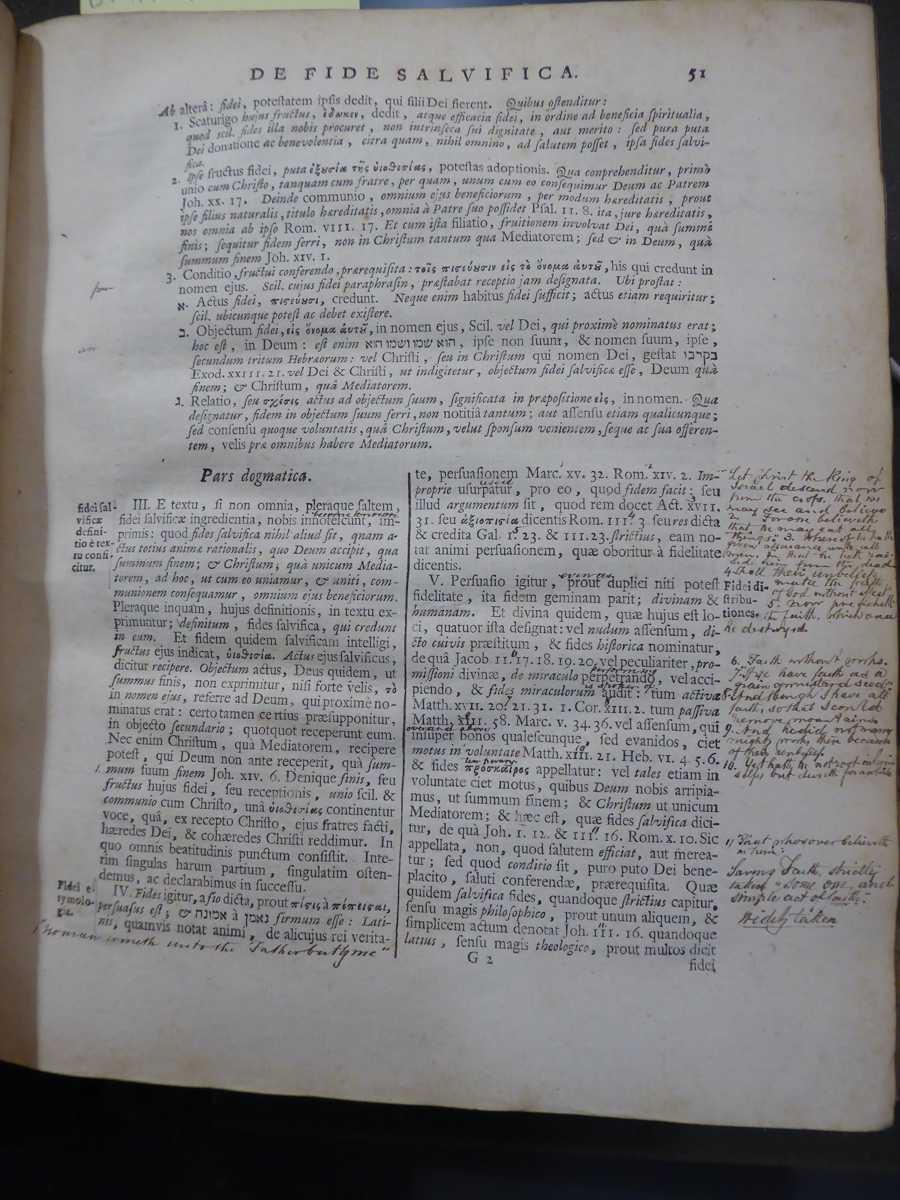 DE FIDE SALVIFICA. 51
Ab alterâ: fidei, potestatem ipsis dedit, qui filii Dei fierent. Quibus ostenditur:
1. Scaturigo hujus fructus, ἔδωκεν, dedit, atque efficacia fidei, in ordine ad beneficia spiritualia,
quod scil. fides illa nobis procuret, non intrinseca sui dignitate, aut merito: sed pura puta
Dei donatione ac benevolentia, citra quam, nihil omnino, ad salutem posset, ipsa fides salvi-
fica.
2. Ipse fructus fidei, puta ἐξουσία τῆς ὑιοθεσίας, potestas adoptionis. Qua conprehenditur, primò
unio cum Christo, tanquam cum fratre, per quam, unum cum eo consequimur Deum ac Patrem
Joh. XX. 17. Deinde communio, omnium ejus beneficiorum, per modum hæreditatis, prout
ipse filius naturalis, titulo hæreditatis, omnia à Patre suo possidet Psal. II. 8. ita, jure hæreditatis,
nos omnia ab ipso Rom. VIII. 17. Et cum ista filiatio, fruitionem involvat Dei, quà summi
finis; sequitur fidem ferri, non in Christum tantum qua Mediatorem; sed & in Deum, quà
summum finem Joh. XIV. 1.
3. Conditio, fructui conferendo, prærequisita: τοῖς πιστεύουσιν εἰς τὸ ὄνομα αὐτοῦ, his qui credunt in
nomen ejus. Scil. cujus fidei paraphrasin, præstabat receptio jam designata. Ubi prostat:
א. Actus fidei, πιστεύουσι, credunt. Neque enim habitus fidei sufficit; actus etiam requiritur;
scil. ubicunque potest ac debet existere.
ב. Objectum fidei, εἰς ὄνομα αὐτοῦ, in nomen ejus, Scil. vel Dei, qui proximè nominatus erat;
hoc est, in Deum: est enim הוא שמו ושמו הוא, ipse non suum, & nomen suum, ipse,
secundum tritum Hebræorum: vel Christi, seu in Christum qui nomen Dei, gestat בקרבו
Exod. XXIII. 21. vel Dei & Christi, ut indigitetur, objectum fidei salvificæ esse, Deum quà
finem; & Christum, quà Mediatorem.
ג. Relatio, seu σχέσις actus ad objectum suum, significata in præpositione εἰς, in nomen. Qua
designatur, fidem in objectum suum ferri, non notitiâ tantum; aut assensu etiam qualicunque;
sed consensu quoque voluntatis, quâ Christum, velut sponsum venientem, seque ac sua offeren-
tem, velis præ omnibus habere Mediatorum.
Pars dogmatica.
fidei sal-
vificæ
defini-
tio è tex-
tu confi-
citur.
III. E textu, si non omnia, pleraque saltem,
fidei salvificæ ingredientia, nobis innotescunt, im-
primis: quod fides salvifica nihil aliud sit, quam a-
ctus totius animæ rationalis, quo Deum accipit, qua
summum finem; & Christum, quà unicum Media-
torem, ad hoc, ut cum eo uniamur, & uniti, com-
munionem consequamur, omnium ejus beneficiorum.
Pleraque inquam, hujus definitionis, in textu ex-
primuntur; definitum, fides salvifica, qui credunt
in eum. Et fidem quidem salvificam intelligi,
fructus ejus indicat, ὑιοθεσία. Actus ejus salvificus,
dicitur recipere. Objectum actus, Deus quidem, ut
summus finis, non exprimitur, nisi forte velis, τὸ
in nomen ejus, referre ad Deum, qui proximè no-
minatus erat: certo tamen certius præsupponitur,
in objecto secundario; quotquot receperunt eum.
Nec enim Christum, quà Mediatorem, recipere
potest, qui Deum non ante receperit, quà sum-
1. mum suum finem Joh. XIV. 6. Denique finis, seu
fructus hujus fidei, seu receptionis, unio scil. &
communio cum Christo, unâ ὑιοθεσίας continentur
voce, quâ, ex recepto Christo, ejus fratres facti,
hæredes Dei, & cohæredes Christi reddimur. In
quo omnis beatitudinis punctum consistit. Inte-
rim singulas harum partium, singulatim osten-
demus, ac declarabimus in successu.
Fidei e-
tymolo-
gia.
IV. Fides igitur, a fio dicta, prout πίστις à πέπεισαι,
persuasus est; & אמונה à נאמן firmum esse: Lati-
nis, quamvis notat animi, de alicujus rei verita-
1 "no man cometh unto the Father but by me"
te, persuasionem Marc. XV. 32. Rom. XIV. 2. Im-
proprie usurpatur, pro eo, quod fidem facit: seu
illud argumentum sit, quod rem docet Act. XVII.
31. seu ἀξιοπιστία dicentis Rom. III. 3 seu res dicta
& credita Gal. I. 23. & III. 23. strictius, eam no-
tat animi persuasionem, quæ aboritur à fidelitate
dicentis.
V. Persuasio igitur, prout duplici niti potest
fidelitate, ita fidem geminam parit; divinam &
humanam. Et divina quidem, quæ hujus est lo-
ci, quatuor ista designat: vel nudum assensum, di-
cto cuivis præstitum, & fides historica nominatur,
de quâ Jacob II. 17. 18. 19. 20, vel peculiariter, pro-
missioni divinæ, de miraculo perpetrando, vel acci-
piendo, & fides miraculorum audit: tum activa
Matth. XVII. 20. 21. 31. 1. Cor. XIII. 2. tum passiva
Matth. XIII. 58. Marc. V. 34. 36. vel assensum, qui
insuper bonos qualescunque, sed evanidos, ciet
motus in voluntate Matth. XIII. 21. Heb. VI. 4. 5. 6.
& fides πρόσκαιρος appellatur: vel tales etiam in
voluntate ciet motus, quibus Deum nobis arripia-
mus, ut summum finem; & Christum ut unicum
Mediatorem; & hæc est, quæ fides salvifica dici-
tur, de quâ Joh. I. 12. & III. 16. Rom. X. 10. Sic
appellata, non, quod salutem efficiat, aut merea-
tur; sed quod conditio sit, puro puto Dei bene-
placito, saluti conferendæ, prærequisita. Quæ
quidem salvifica fides, quandoque strictius capitur,
sensu magis philosophico, prout unum aliquem, &
simplicem actum denotat Joh. III. 16. quandoque
latius, sensu magis theologico, prout multos dicit
G 2 fidei
Fidei di-
stribu-
tiones.
Let Christ the King of
Israel descend now
from the cross, that we
may see and believe
2. For one believeth
that he may eat all
things; 3. Whereof he hath
given assurance unto all
men, in that he hath rais-
ed him from the dead
4. Shall their unbelief
make the faith
of God without effect
5. now preacheth
the faith which once
he destroyed
6. Faith without works.
7. If ye have faith as a
grain of mustard seed
8. And though I have all
faith, so that I could
remove mountains
9. And he did not many
mighty works there because
of their unbelief.
10. Yet hath he not root in him
self but dureth for a while
11 That whosoever believeth
in him
Saving Faith, strictly
taken "some one, and
simple act of faith.
Widely taken